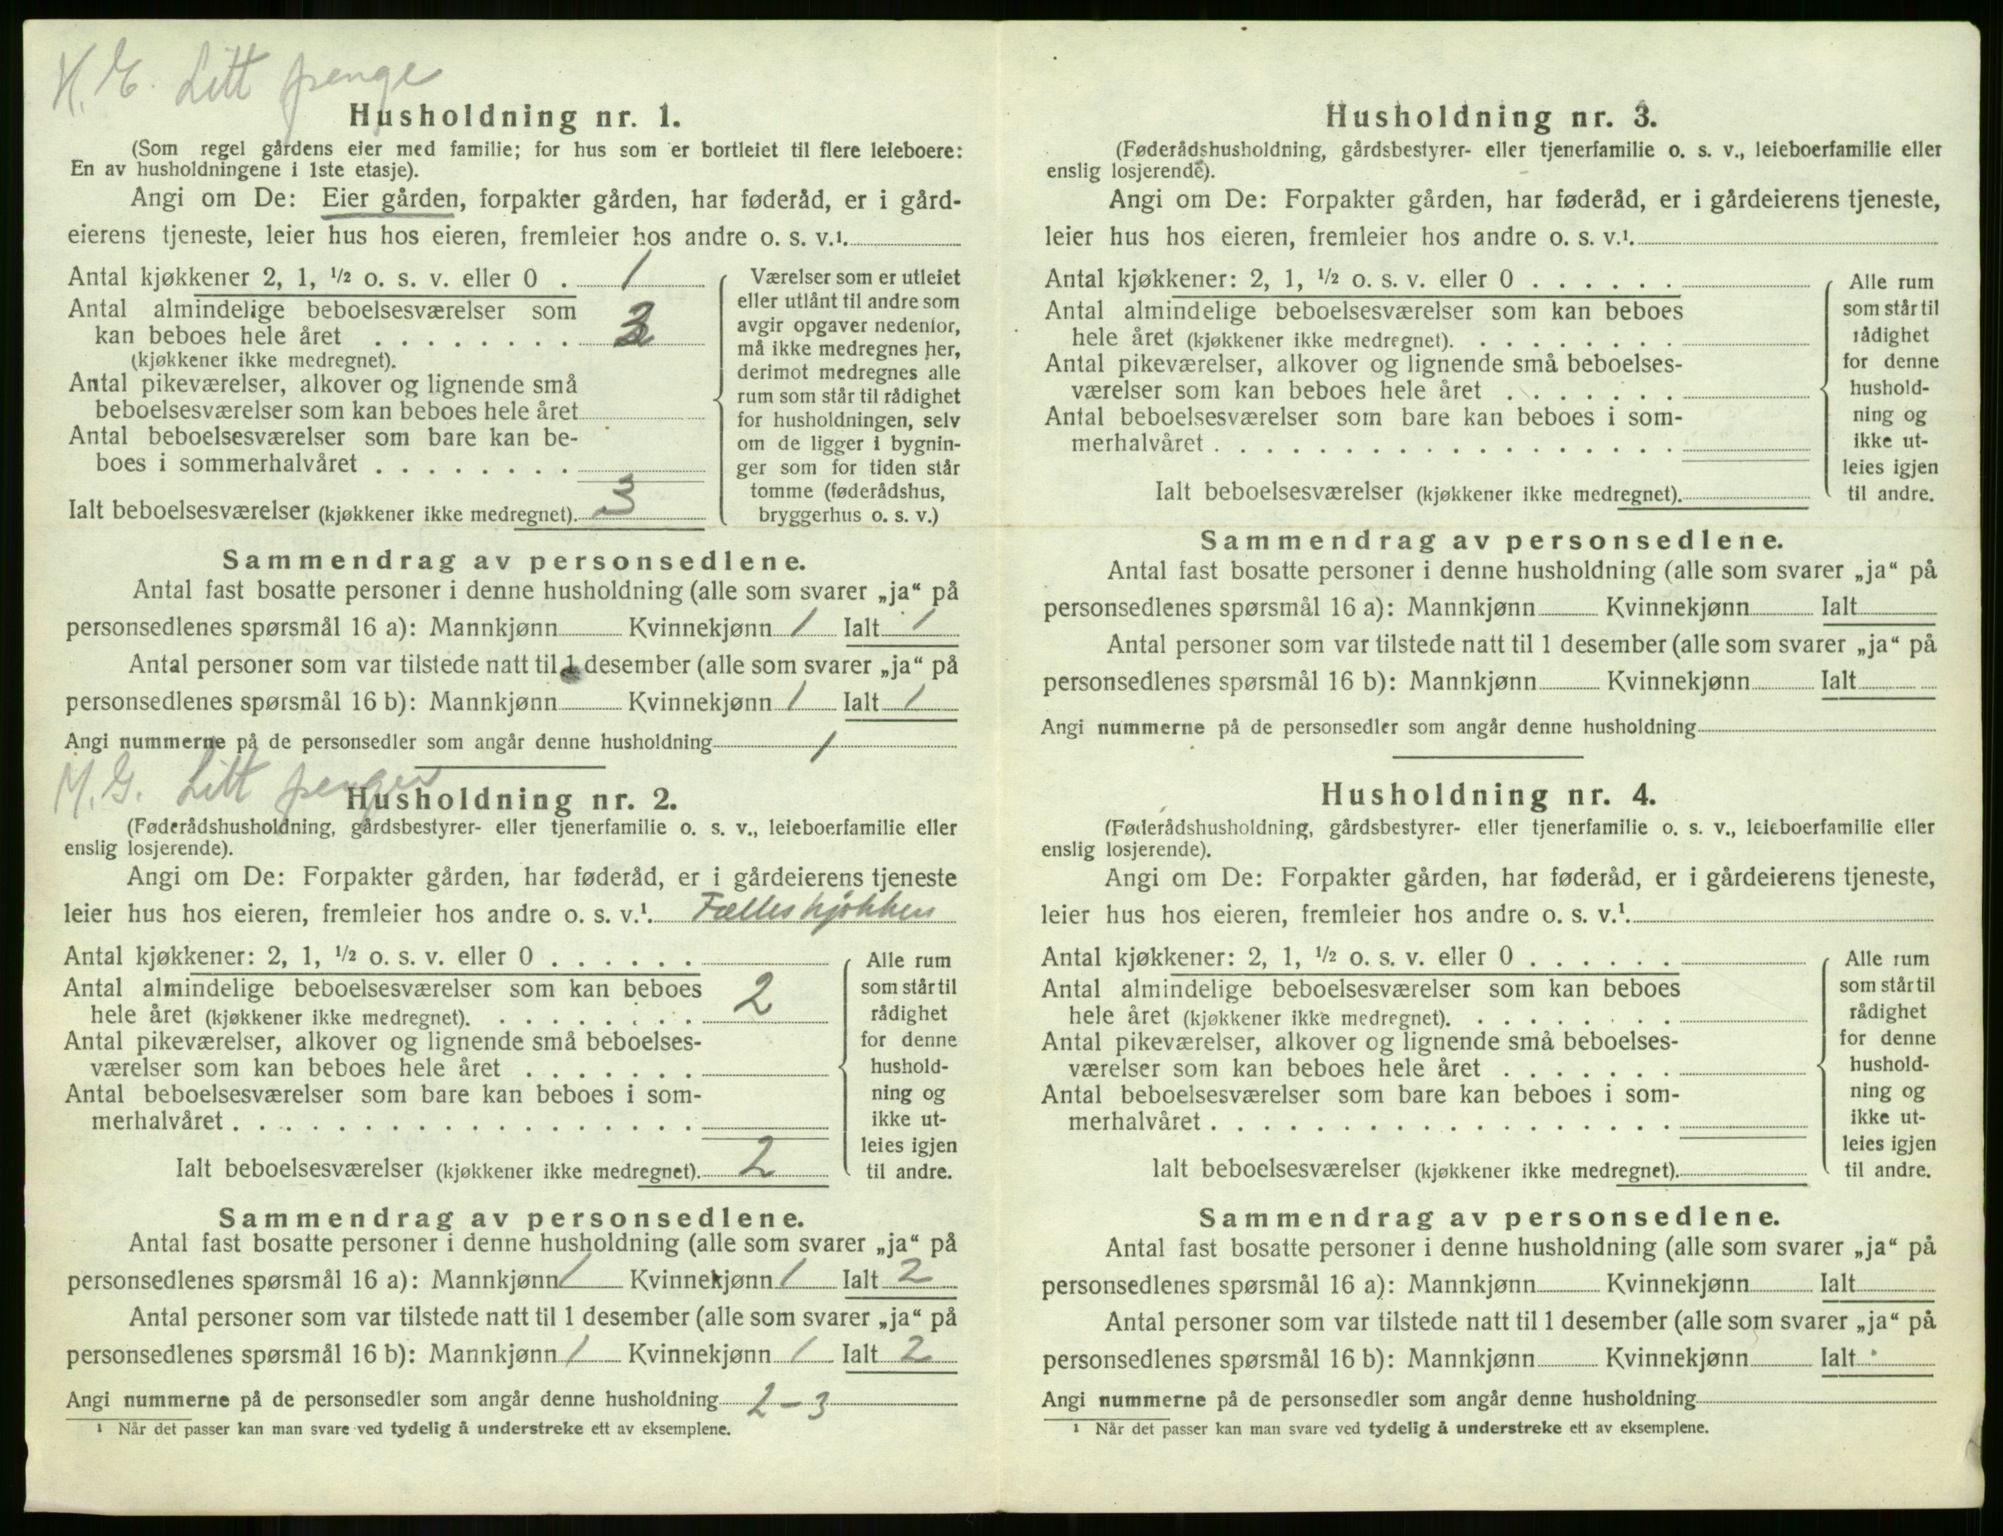 H. G. Litt penge
Husholdning nr. 1.
(Som regel gårdens eier med familie; for hus som er bortleiet til flere leieboere:
En av husholdningene i 1ste etasje).
Angi om De: Eier gården, forpakter gården, har føderåd, er i gård-
eierens tjeneste, leier hus hos eieren, fremleier hos andre o. s. v.¹
Antal kjøkkener 2, 1, ½ o. s. v. eller 0 . 1
Antal almindelige beboelsesværelser som
kan beboes hele året . . . . . . . . 3
(kjøkkener ikke medregnet).
Antal pikeværelser, alkover og lignende små
beboelsesværelser som kan beboes hele året
Antal beboelsesværelser som bare kan be-
boes i sommerhalvåret . . . . . . . .
Ialt beboelsesværelser (kjøkkener ikke medregnet). 3
Værelser som er utleiet
eller utlånt til andre som
avgir opgaver nedenfor,
må ikke medregnes her,
derimot medregnes alle
rum som står til rådighet
for husholdningen, selv
om de ligger i bygnin-
ger som for tiden står
tomme (føderådshus,
bryggerhus o. s. v.)
Sammendrag av personsedlene.
Antal fast bosatte personer i denne husholdning (alle som svarer „ja“ på
personsedlenes spørsmål 16 a): Mannkjønn Kvinnekjønn 1 Ialt 1
Antal personer som var tilstede natt til 1 desember (alle som svarer „ja“ på
personsedlenes spørsmål 16 b): Mannkjønn Kvinnekjønn 1 Ialt 1
Angi nummerne på de personsedler som angår denne husholdning 1
M. G. Litt penger
Husholdning nr. 2.
(Føderådshusholdning, gårdsbestyrer- eller tjenerfamilie o. s. v., leieboerfamilie eller
enslig losjerende).
Angi om De: Forpakter gården, har føderåd, er i gårdeierens tjeneste
leier hus hos eieren, fremleier hos andre o. s. v.¹. Fælleskjøkken
Antal kjøkkener: 2, 1, ½ o. s. v. eller 0 . . . . . .
Antal almindelige beboelsesværelser som kan beboes
hele året (kjøkkener ikke medregnet). . . . . . . . . 2
Antal pikeværelser, alkover og lignende små beboelses-
værelser som kan beboes hele året . . . . . . .
Antal beboelsesværelser som bare kan beboes i som-
merhalvåret . . . . . . . . . . . . . . . . . .
Ialt beboelsesværelser (kjøkkener ikke medregnet). 2
Alle rum
som står til
rådighet
for denne
hushold-
ning og
ikke ut-
leies igjen
til andre.
Sammendrag av personsedlene.
Antal fast bosatte personer i denne husholdning (alle som svarer „ja“ på
personsedlenes spørsmål 16 a): Mannkjønn 1 Kvinnekjønn 1 Ialt 2
Antal personer som var tilstede natt til 1 desember (alle som svarer „ja“ på
personsedlenes spørsmål 16 b): Mannkjønn 1 Kvinnekjønn 1 Ialt 2
Angi nummerne på de personsedler som angår denne husholdning 2-3
¹ Når det passer kan man svare ved tydelig å understreke ett av eksemplene.
Husholdning nr. 3.
(Føderådshusholdning, gårdsbestyrer- eller tjenerfamilie o. s. v., leieboerfamilie eller
enslig losjerende).
Angi om De: Forpakter gården, har føderåd, er i gårdeierens tjeneste,
leier hus hos eieren, fremleier hos andre o. s. v.¹.
Antal kjøkkener: 2, 1, ½ o. s. v. eller 0 . . . . . .
Antal almindelige beboelsesværelser som kan beboes
hele året (kjøkkener ikke medregnet). . . . . . . . .
Antal pikeværelser, alkover og lignende små beboelses-
værelser som kan beboes hele året . . . . . . .
Antal beboelsesværelser som bare kan beboes i som-
merhalvåret . . . . . . . . . . . . . . . . . .
Ialt beboelsesværelser (kjøkkener ikke medregnet).
Alle rum
som står til
rådighet
for denne
hushold-
ning og
ikke ut-
leies igjen
til andre.
Sammendrag av personsedlene.
Antal fast bosatte personer i denne husholdning (alle som svarer „ja“ på
personsedlenes spørsmål 16 a): Mannkjønn Kvinnekjønn Ialt
Antal personer som var tilstede natt til 1 desember (alle som svarer „ja“ på
personsedlenes spørsmål 16 b): Mannkjønn Kvinnekjønn Ialt
Angi nummerne på de personsedler som angår denne husholdning
Husholdning nr. 4.
(Føderådshusholdning, gårdsbestyrer- eller tjenerfamilie o. s. v., leieboerfamilie eller
enslig losjerende).
Angi om De: Forpakter gården, har føderåd, er i gårdeierens tjeneste,
leier hus hos eieren, fremleier hos andre o. s. v.¹.
Antal kjøkkener: 2, 1, ½ o. s. v. eller 0 . . . . . .
Antal almindelige beboelsesværelser som kan beboes
hele året (kjøkkener ikke medregnet). . . . . . . . .
Antal pikeværelser, alkover og lignende små beboelses-
værelser som kan beboes hele året . . . . . . .
Antal beboelsesværelser som bare kan beboes i som-
merhalvåret . . . . . . . . . . . . . . . . . .
Ialt beboelsesværelser (kjøkkener ikke medregnet).
Alle rum
som står til
rådighet
for denne
hushold-
ning og
ikke ut-
leies igjen
til andre.
Sammendrag av personsedlene.
Antal fast bosatte personer i denne husholdning (alle som svarer „ja“ på
personsedlenes spørsmål 16 a): Mannkjønn Kvinnekjønn Ialt
Antal personer som var tilstede natt til 1 desember (alle som svarer „ja“ på
personsedlenes spørsmål 16 b): Mannkjønn Kvinnekjønn Ialt
Angi nummerne på de personsedler som angår denne husholdning
¹ Når det passer kan man svare ved tydelig å understreke ett av eksemplene.